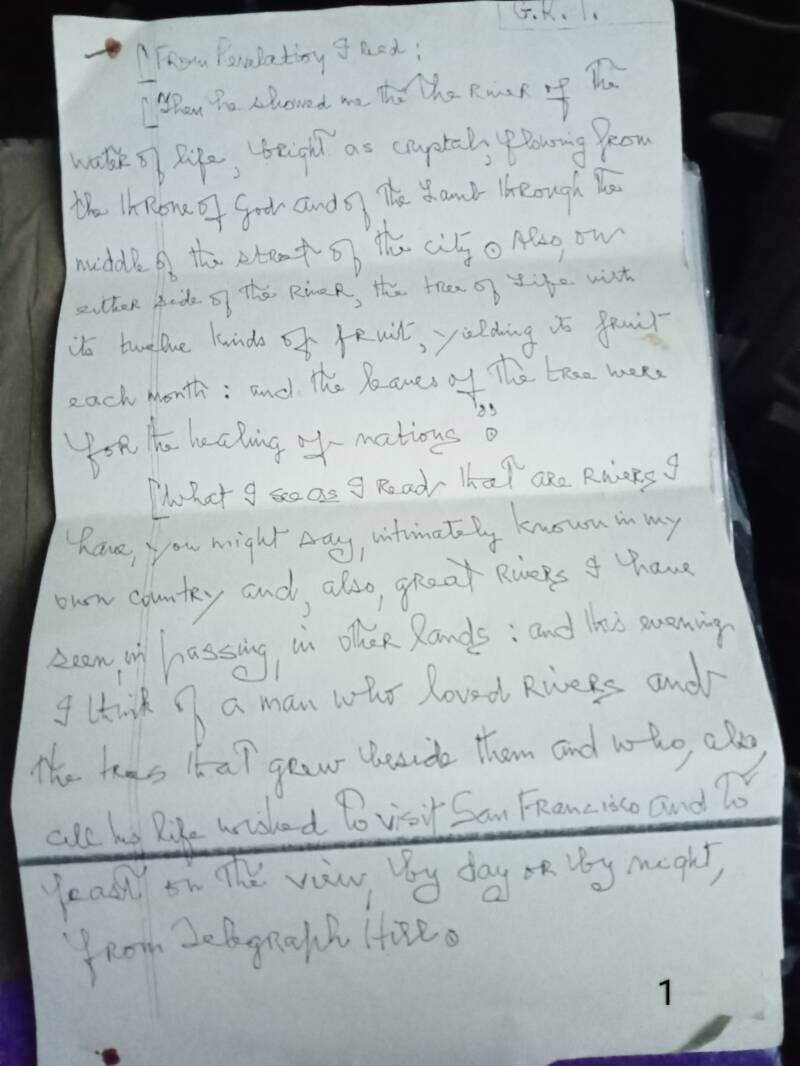 G.K.1.
[From Revelation I read:
[Then he showed me the the River of the
water of life, bright as crystal, flowing from
the throne of God and of the Lamb through the
middle of the street of the city. Also, on
either side of the River, the tree of Life with
its twelve kinds of fruit, yielding its fruit
each month: and the leaves of the tree were
for the healing of nations."
[What I see as I read that are Rivers I
have, you might say, intimately known in my
own country and, also, great Rivers I have
seen, in passing, in other lands: and this evening
I think of a man who loved Rivers and
the trees that grew beside them and who, also,
all his life wished to visit San Francisco and to
feast on the view, by day or by night,
from Telegraph Hill.
1